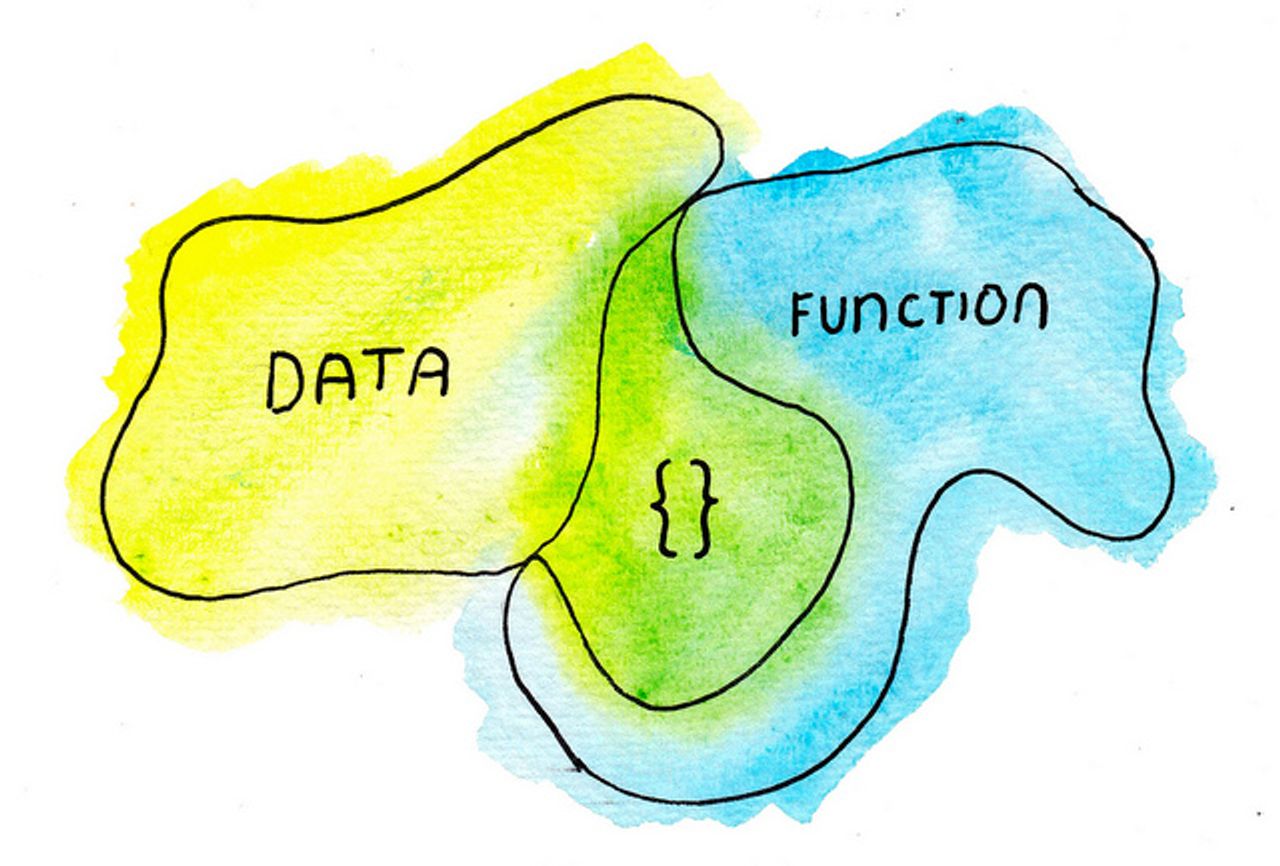 DATA
FUNCTION
{}